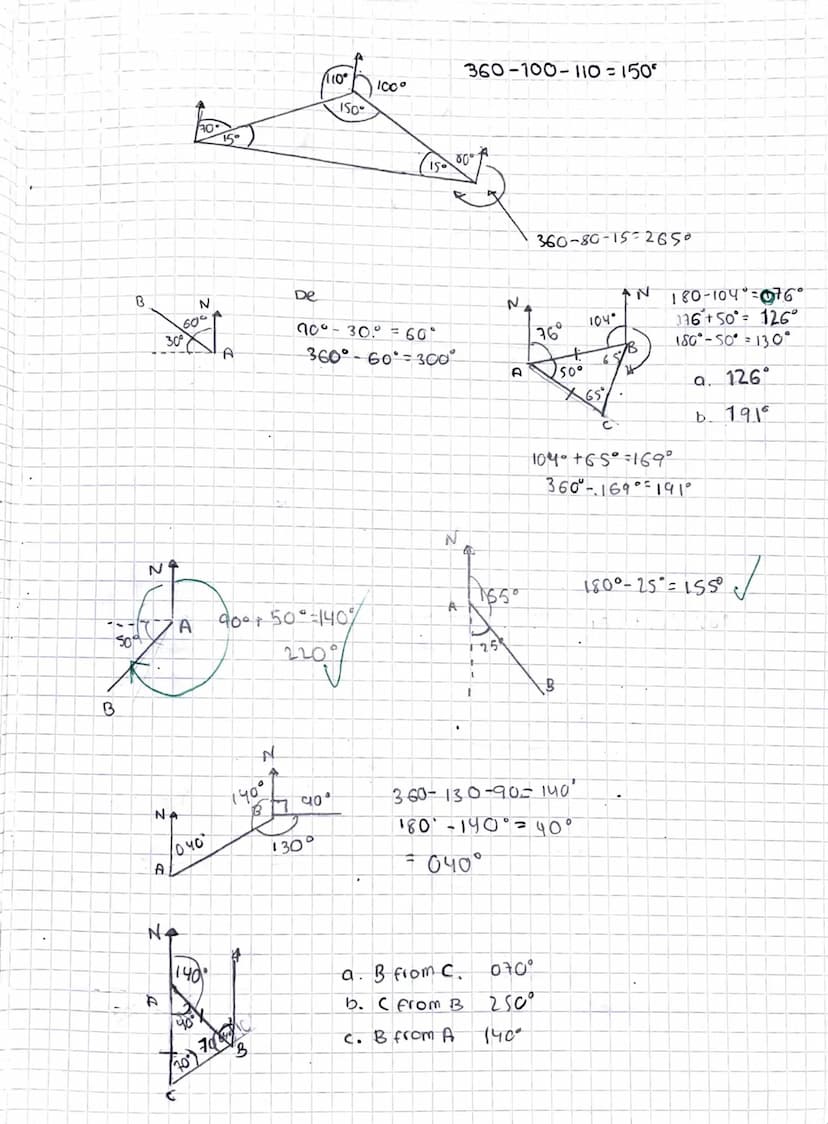 360-100-110=150°
110°
100°
150°
70°
15°
15°
80°
360-80-15=265°
B
N
60°
30°
A
De
90°-30°=60°
360°-60°=300°
N
N
76°
104°
A
50°
65°
B
65°
C
180-104°=076°
76°+50°=126°
180°-50°=130°
a. 126°
b. 191°
104°+65°=169°
360°-169°=191°
N
A
50°
B
90°+50°=140°
220°
N
A
155°
25°
B
180°-25°=155°
N
140°
90°
B
130°
N
040°
A
360-130-90=140°
180°-140°=40°
=040°
N
140°
A
40°
70
B
70°
C
a. B from C. 070°
b. C from B 250°
c. B from A 140°